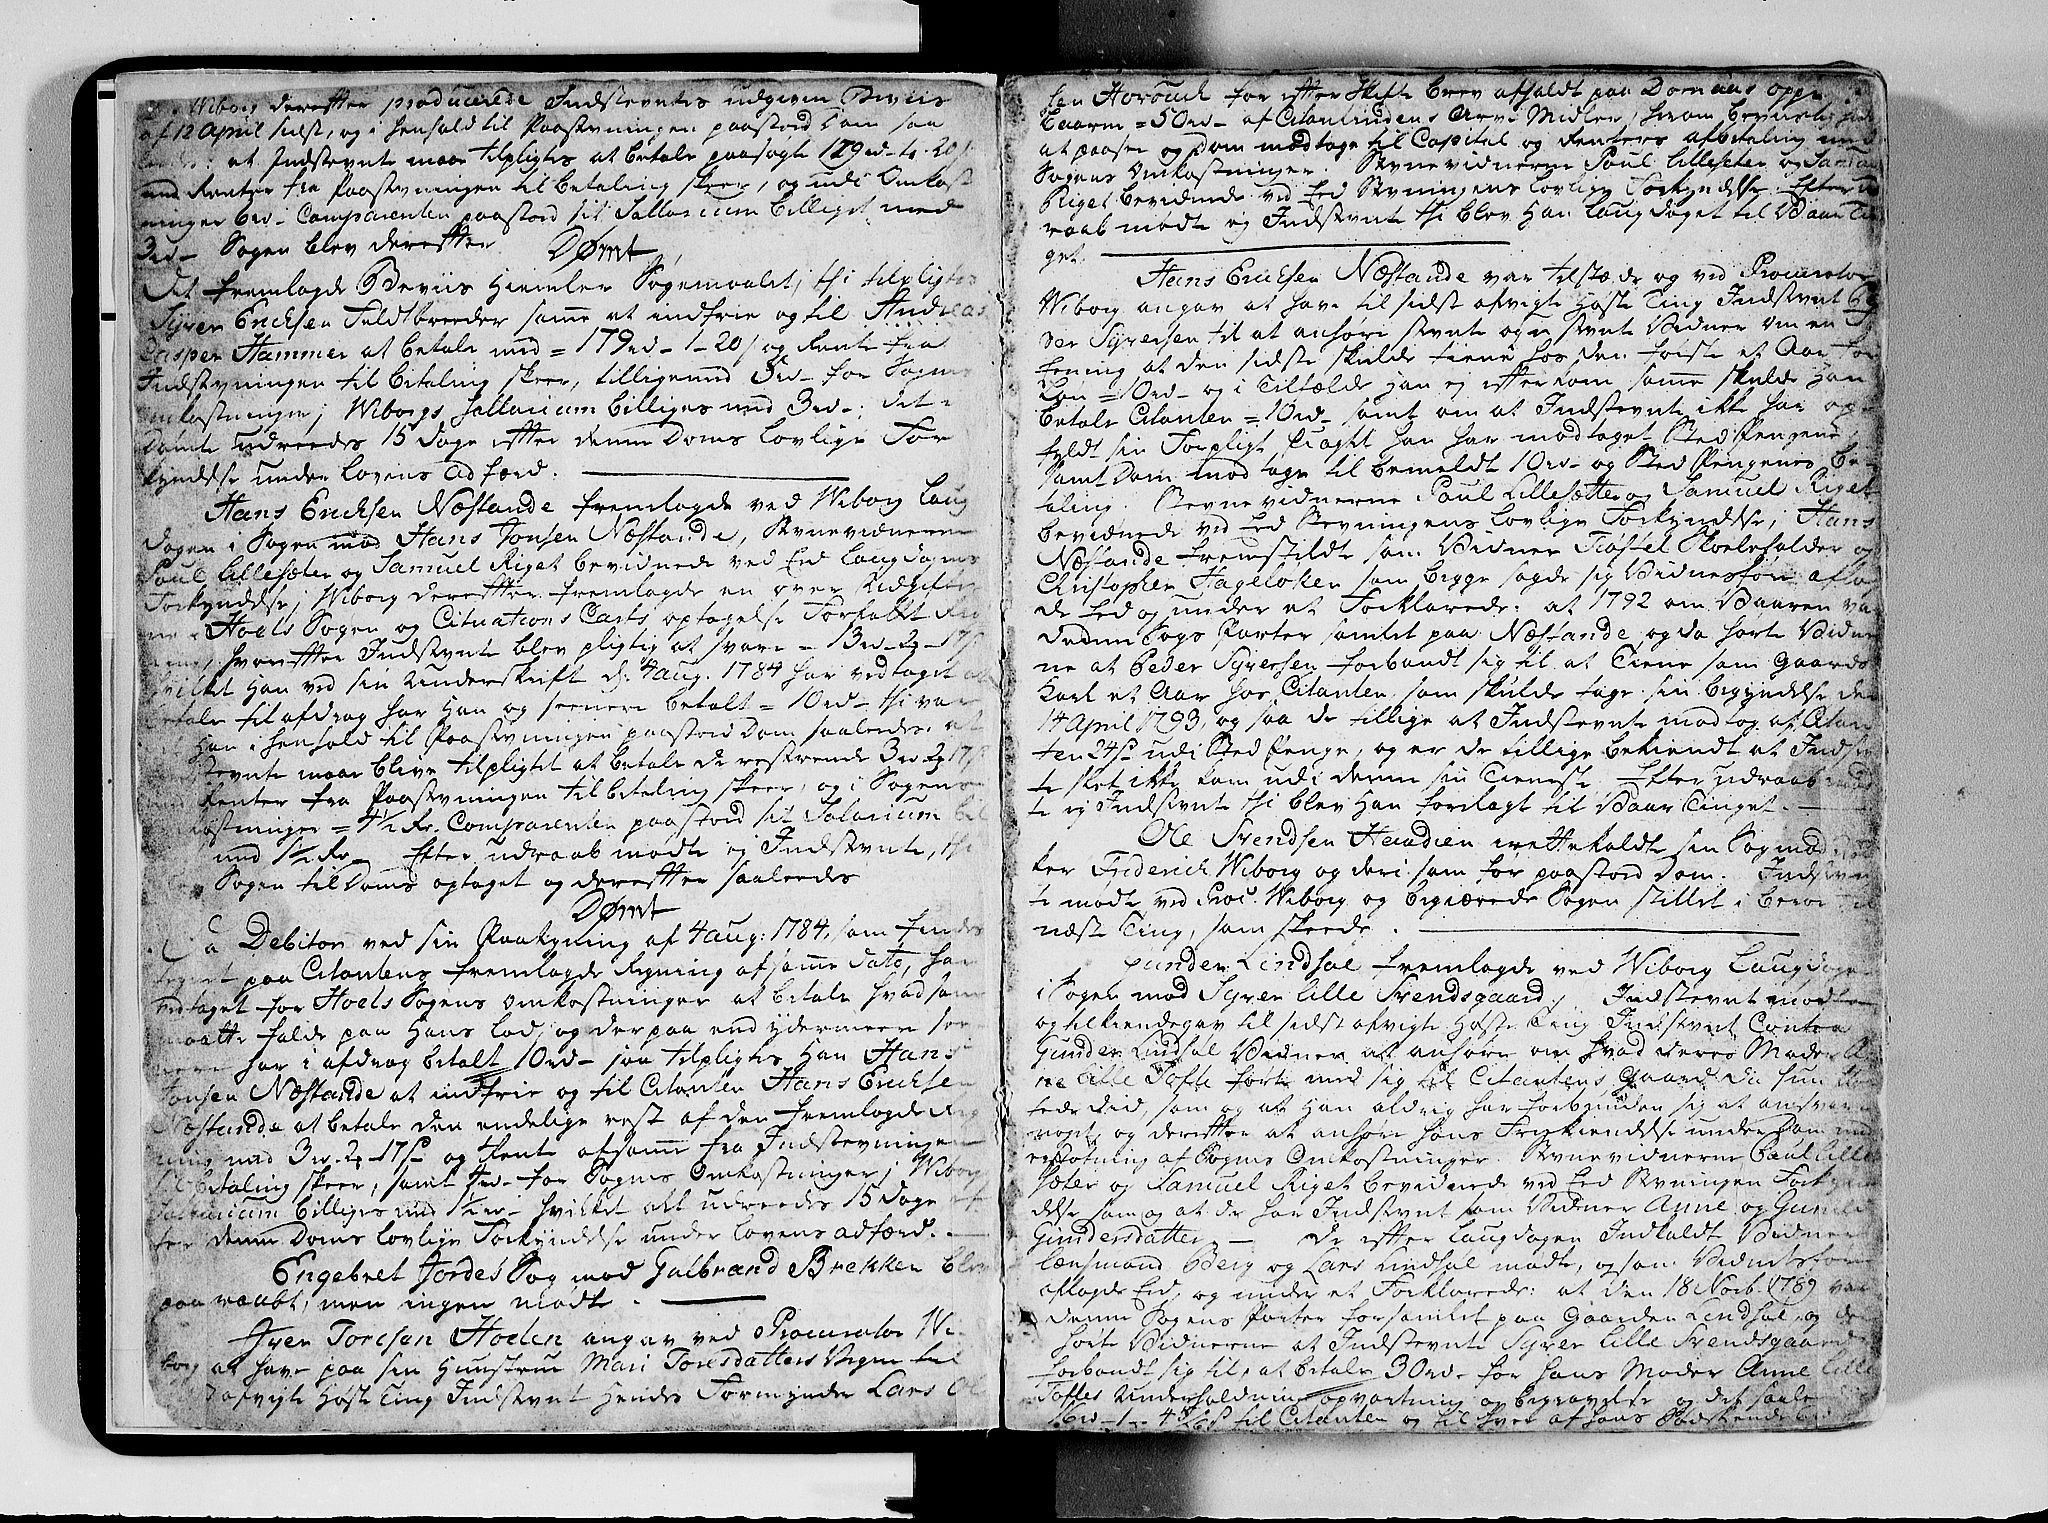 Wiborg derefter producerede Indstevntes udgivne Beviis
af 12 April sidst, og i henhold til Paastevningen paastod Dom saa
at Indstevnte maae tilpligtes at betale paasagte 179 rd 1 20
med Renter fra Paastevningen til betaling skeer, og udi Omkost
ninger 6 rd - Comparenten paastod sit Sallarium billiget med
3 rd - Sagen blev derefter
Dømt
Det fremlagde Beviis hiemler Sagemaalet, thi tilpligtes
Syver Erichsen Fuldtbreeder samme at indfrie og til Andreas
Casper Hammer at betale med = 179 rd - 1 - 20 s og Rente fra
Indstevningen til betaling skeer, tilligemed 5 rd - for Sagens
omkostninger; Wiborgs Sallarium billiges med 3 rd -; det i
Dømte udreedes 15 Dage efter denne Doms lovlige For
kyndelse under Lovens adfærd.
Hans Erichsen Næstande fremlagde ved Wiborg Laug
dagen i Sagen mod Hans Jonsen Næstande, Stevnevidnerne
Poul Lillesæter og Samuel Riget bevidnede ved Eed Laugdagens
Forkyndelse; Wiborg derefter fremlagde en over Udgifter
ne i Hoels Sagen og Cituations Carts optagelse Forfattet Reg
ning, hvorefter Indstevnte blev pligtig at svare - 13 rd - 2 - 17 s
hvilket han ved sin Underskrift d: 4 aug. 1784 har vedtaget at
betale til afdrag har han og seenere betalt = 10 rd - thi var
han i henhold til Paastevningen paastod Dom saaledes: at
Indstevnte maae blive tilpligtet at betale de resterende 3 rd 2 17 s
med Renter fra Paastevningen til betaling skeer, og i Sagens
Omkostninger = 4½ Rd. Comparenten paastod sit Salarium bil
med 1½ Rd - Efter udraab mødte ej Indstevnte, thi
blev Sagen til Doms optaget og derefter saaleedes
Dømt
Da Debitor ved sin Paategning af 4 aug: 1784, som findes
tegnet paa Citantens fremlagde Regning af samme Dato, har
vedtaget for Hoels Sagens omkostninger at betale hvad som
maatte falde paa hans lod, og derpaa end ydermeere see
nere har i afdrag betalt 10 rd - saa tilpligtes han Hans
Jonsen Næstande at indfrie og til Citanten Hans Erichsen
Næstande at betale den endelige rest af den fremlagde Reg
ning med 3 rd - 2 - 17 s og Rente af samme fra Indstevningen
til betaling skeer, samt 4 rd - for Sagens Omkostninger; Wiborgs
Salarium billiges med 1½ rd - hvilket alt udreedes 15 Dage ef
ter denne Doms lovlige Forkyndelse under Lovens adfærd.
Engebret Jordes Sag mod Gulbrand Brekken blev
paaraabt, men ingen mødte.
Iver Toresen Hoelen angav ved Procurator Wi
borg at have paa sin Hunstrue Mari Toresdatters Vegne til
afvigte Høste Ting Indstevnt hendes Formynder Lars Ol
sen for efter Skifte brev afholdt paa Domaas oppe
baarne = 50 rd - af Citantindens Arve Midler, herom beviislighed
at paasee og Dom modtage til Capital og Renters afbetaling med
Sagens Omkostninger. Stevnevidnerne Poul Lillesæter og Samuel
Riget bevidnede ved Eed Stevningens lovlige Forkyndelse. Efter ud
raab mødte ej Indstevnte thi blev han laugdaget til Vaar Tin
get.
Hans Erichsen Næstande var tilstæde og ved Procurator
Wiborg angav at have til sidst afvigte Høste Ting Indstevnt Pe
der Syversen til at anhøre stevnte og u stevnte Vidner om en For
Eening at den sidste skulde tiene hos den første et Aar for
Løn = 10 rd - og i Tilfælde han ej efterkom samme skulde han
betale Citanten = 10 rd - samt om at Indstevnte ikke har op
fyldt sin Forpligt uagtet han har modtaget Sted Pengene,
samt Dom modtage til bemeldt 10 rd - og Sted Pengenes be
taling. Stevnevidnerne Poul Lillesætter og Samuel Riget
bevidnede ved Eed Stevningens lovlige Forkyndelse; Hans
Næstande fremstildte som Vidner Tostel Skoleholder og
Christopher Hageløken som begge sagde sig Vidnesfør, aflag
de Eed og under et Forklarede: at 1792 om Vaaren var
denne Sags Parter samlet paa Næstande, og da hørte Vidner
ne at Peder Syversen forbandt sig til at Tiene som Gaards
Karl et Aar hos Citanten som skulde tage sin begyndelse den
14 April 1793, og saa de tillige at Indstevnte modtog af Citan
ten 24 s udi Sted Penge, og er de tillige bekiendt at Indstevn
te slet ikke kom udi denne sin Tieneste. Efter udraab mød
te ej Indstevnte thi blev han forelagt til Vaar Tinget.
Ole Svendsen Haadien irettekaldte sin Sag mod
ker Friderich Wiborg og deri som før paastod Dom. Indstevn
te mødte ved Proc. Wiborg og begierede Sagen stillet i beroe til
næste Ting, som skeede.
Gunder Lindsøl fremlagde ved Wiborg Laugdagen
i Sagen mod Syver Lille Svendsgaard, Indstevnt mødte
og tilkiendegav til sidst afvigte Høste Ting Indstevnt Contra
Gunder Lindsøl Vidner at anhøre om hvad deres Moder An
ne Lille Tofte førte med sig til Citantens Gaard da hun flyt
tede did, som og at han aldrig har forbunden sig at ansvare
noget og derefter at anhøre hans Frikiendelse under Dom med
erstatning af Sagens Omkostninger. Stevnevidnerne Poul Lille
sæter og Samuel Riget bevidnede ved Eed Stevningens Forkyn
delse som og at de har Indstevnt som Vidner Anne og Gunild
Gundersdatter - De efter Laugdagen Indkaldt Vidner
Lænsmand Berg og Lars Lindsøl mødte, og som Vidnesføre
aflagde Eed, og under et Forklarede: at den 18 Novb. 1789 var
denne Sagens Parter forsamlet paa Gaarden Lindsøl, og da
hørte Vidnerne at Indstevnte Syver Lille Svendsgaard
forbandt sig til, at betale 30 rd - for hans Moder Anne Lille
Toftes Underholdning opvartning og begravelse og det saale
16 rd - 1 - til Citanten og til hver af hans Sødskende